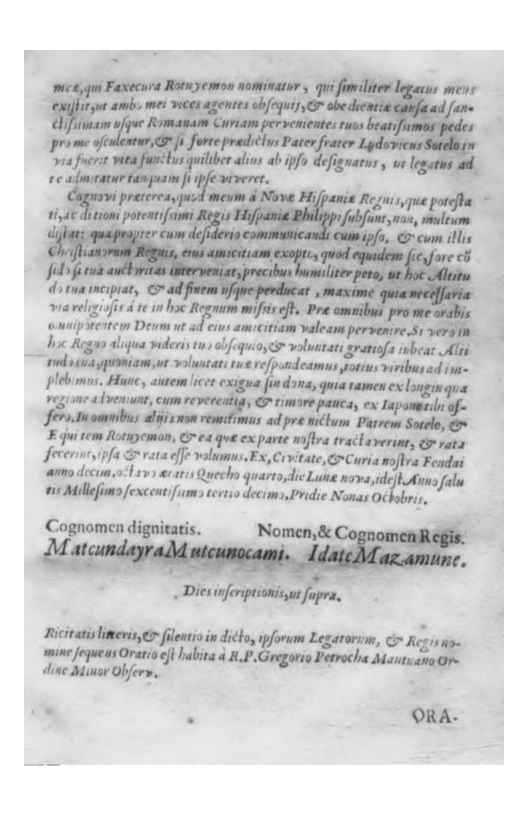 meæ, qui Faxecura Rotuyemon nominatur, qui ſimiliter legatus meus
exiſtit, ut ambo mei vices agentes obſequij, & obedientiæ cauſa ad ſan-
ctiſsimam uſque Romanam Curiam pervenientes tuos beatiſsimos pedes
pro me oſculentur, & ſi forte prædictus Pater frater Ludovicus Sotelo in
via fuerit vita functus quilibet alius ab ipſo deſignatus, ut legatus ad
te admitatur tanquam ſi ipſe viveret.
Cognovi præterea, quod meum à Novæ Hiſpaniæ Regnis, quæ poteſta
ti, ac ditioni potentiſsimi Regis Hiſpaniæ Philippi ſubſunt, non, multum
diſtat: quapropter cum deſiderio communicandi cum ipſo, & cum illis
Chriſtianorum Regnis, eius amicitiam exopto, quod equidem ſic, fore cō
fido ſi tua auctoritas interveniat, precibus humiliter peto, ut hoc Altitu
do tua incipiat, & ad finem uſque perducat, maxime quia neceſſaria
via religioſis à te in hoc Regnum miſsis eſt. Præ omnibus pro me orabis
omnipotentem Deum ut ad eius amicitiam valeam pervenire. Si vero in
hoc Regno aliqua videris tuo obſequio, & voluntati gratioſa iubeat Alti
tudo tua, quoniam, ut voluntati tuæ reſpondeamus, totius viribus ad im-
plebimus. Hunc, autem licet exigua ſin dona, quia tamen ex longinqua
regione adveniunt, cum reverentia, & timore pauca, ex Iapone tibi of-
fero. In omnibus alijs non remitimus ad prænictum Patrem Sotelo, &
Equitem Rotuyemon, & ea quæ ex parte noſtra tractaverint, & rata
fecerint, ipſa & rata eſſe volumus. Ex, Civitate, & Curia noſtra Fendai
anno decim, octavo æratis Quecho quarto, die Lunæ nova, ideſt, Anno ſalu
tis Milleſimo ſexcentiſimo tertio decimo. Pridie Nonas Octobris.
Cognomen dignitatis. Nomen, & Cognomen Regis.
MatcundayraMutcunocami. IdateMazamune.
Dies inſcriptionis, ut ſupra.
Ricitatis literis, & ſilentio in dicto, ipſorum Legatorum, & Regis no-
mine ſequens Oratio eſt habita à R.P. Gregorio Petrocha Mantuano Or-
dine Minor Obſerv.
ORA-